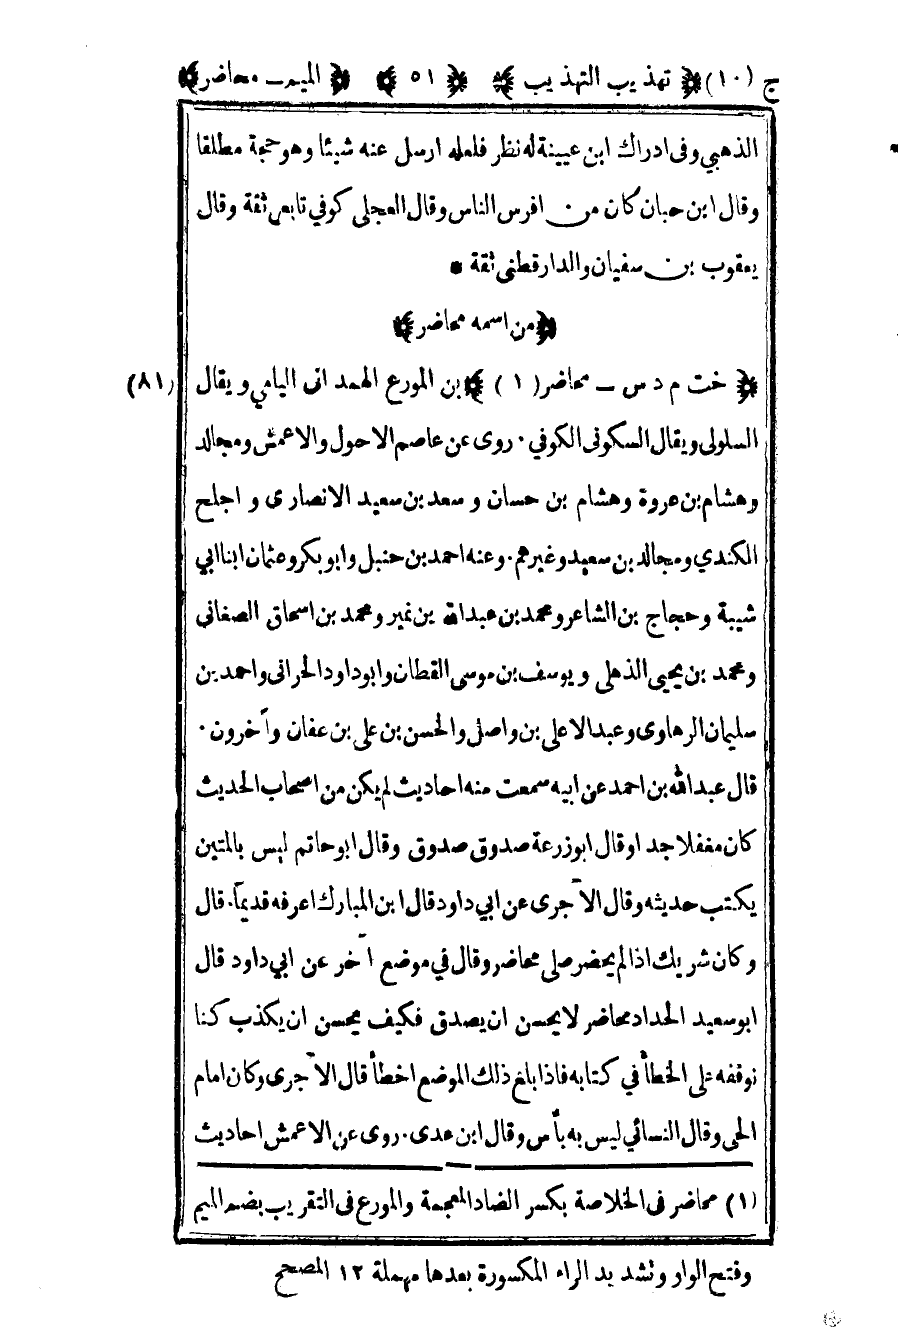 ج (١٠) ﴿ تهذيب التهذيب ﴾ ﴿ ٥١ ﴾ ﴿ الميم ـ محاضر ﴾
الذهبي وفى ادراك ابن عيينة له نظر فلعله ارسل عنه شيئا وهو حجة مطلقا
وقال ابن حبان كان من افرس الناس وقال العجلى كوفي تابعى ثقة وقال
يعقوب بن سفيان والدارقطنى ثقة *
﴿ من اسمه محاضر ﴾
﴿ خت م د س ـ محاضر (١) ﴾ بن المورع الهمدانى اليامي ويقال (٨١)
السلولى ويقال السكونى الكوفي . روى عن عاصم الاحول والاعمش ومجالد
وهشام بن عروة وهشام بن حسان و سعد بن سعيد الانصارى و اجلح
الكندي ومجالد بن سعيد وغيرهم . وعنه احمد بن حنبل وابوبكر وعثمان ابنا ابي
شيبة وحجاج بن الشاعر ومحمد بن عبد الله بن نمير ومحمد بن اسحاق الصغانى
ومحمد بن يحيى الذهلى و يوسف بن موسى القطان وابوداود الحرانى واحمد بن
سليمان الرهاوى وعبد الاعلى بن واصل والحسن بن على بن عفان وآخرون .
قال عبد الله بن احمد عن ابيه سمعت منه احاديث لم يكن من اصحاب الحديث
كان مغفلا جدا وقال ابوزرعة صدوق صدوق وقال ابوحاتم ليس بالمتين
يكتب حديثه وقال الآجرى عن ابي داود قال ابن المبارك اعرفه قديماً. قال
وكان شريك اذا لم يحضر صلى محاضر وقال في موضع آخر عن ابي داود قال
ابوسعيد الحداد محاضر لا يحسن ان يصدق فكيف يحسن ان يكذب كنا
نوقفه على الخطأ في كتابه فاذا بلغ ذلك الموضع اخطأ قال الآجرى وكان امام
الحى وقال النسائي ليس به بأس وقال ابن عدى . روى عن الاعمش احاديث
(١) محاضر فى الخلاصة بكسر الضاد المعجمة والمورع فى التقريب بضم الميم
وفتح الواو وتشديد الراء المكسورة بعدها مهملة ١٢ المصحح